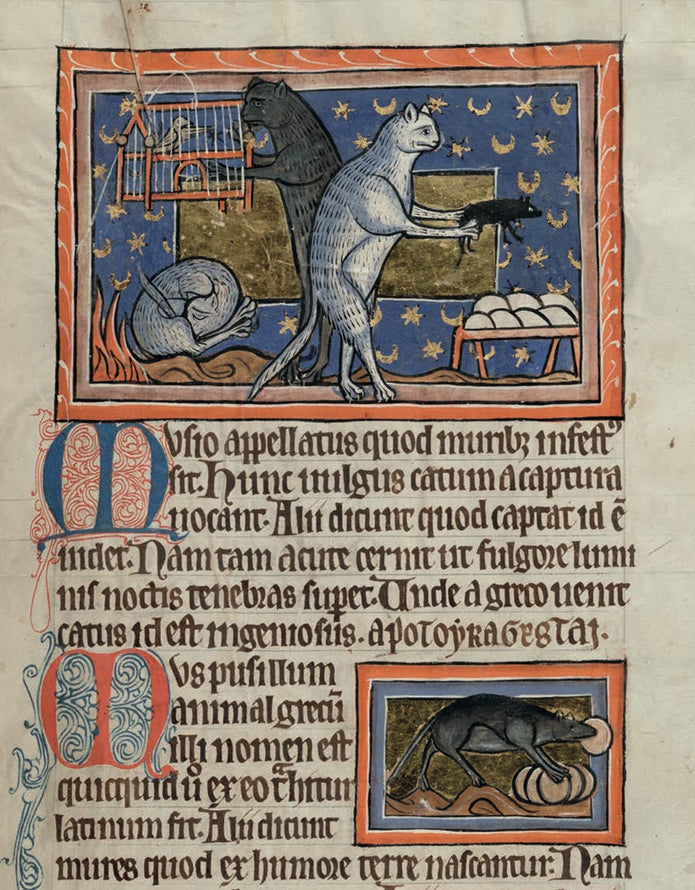 Musio appellatus quod murib; infestꝰ
sit. Hunc uulgus catum a captura
uocant. Alii dicunt quod captat id ē
uidet. Nam tam acute cernit ut fulgore lumi
nis noctis tenebras supet. Unde a greco uenit
catus id est ingeniosus. ΑΠΟΤΟΥΚΑΘΕΣΤΑΙ.
Mus pusillum
animal grecū
illi nomen est
quicquid ū ex eo
latinum fit. Alii dicunt
mures quod ex humore terre nascantur: Nam